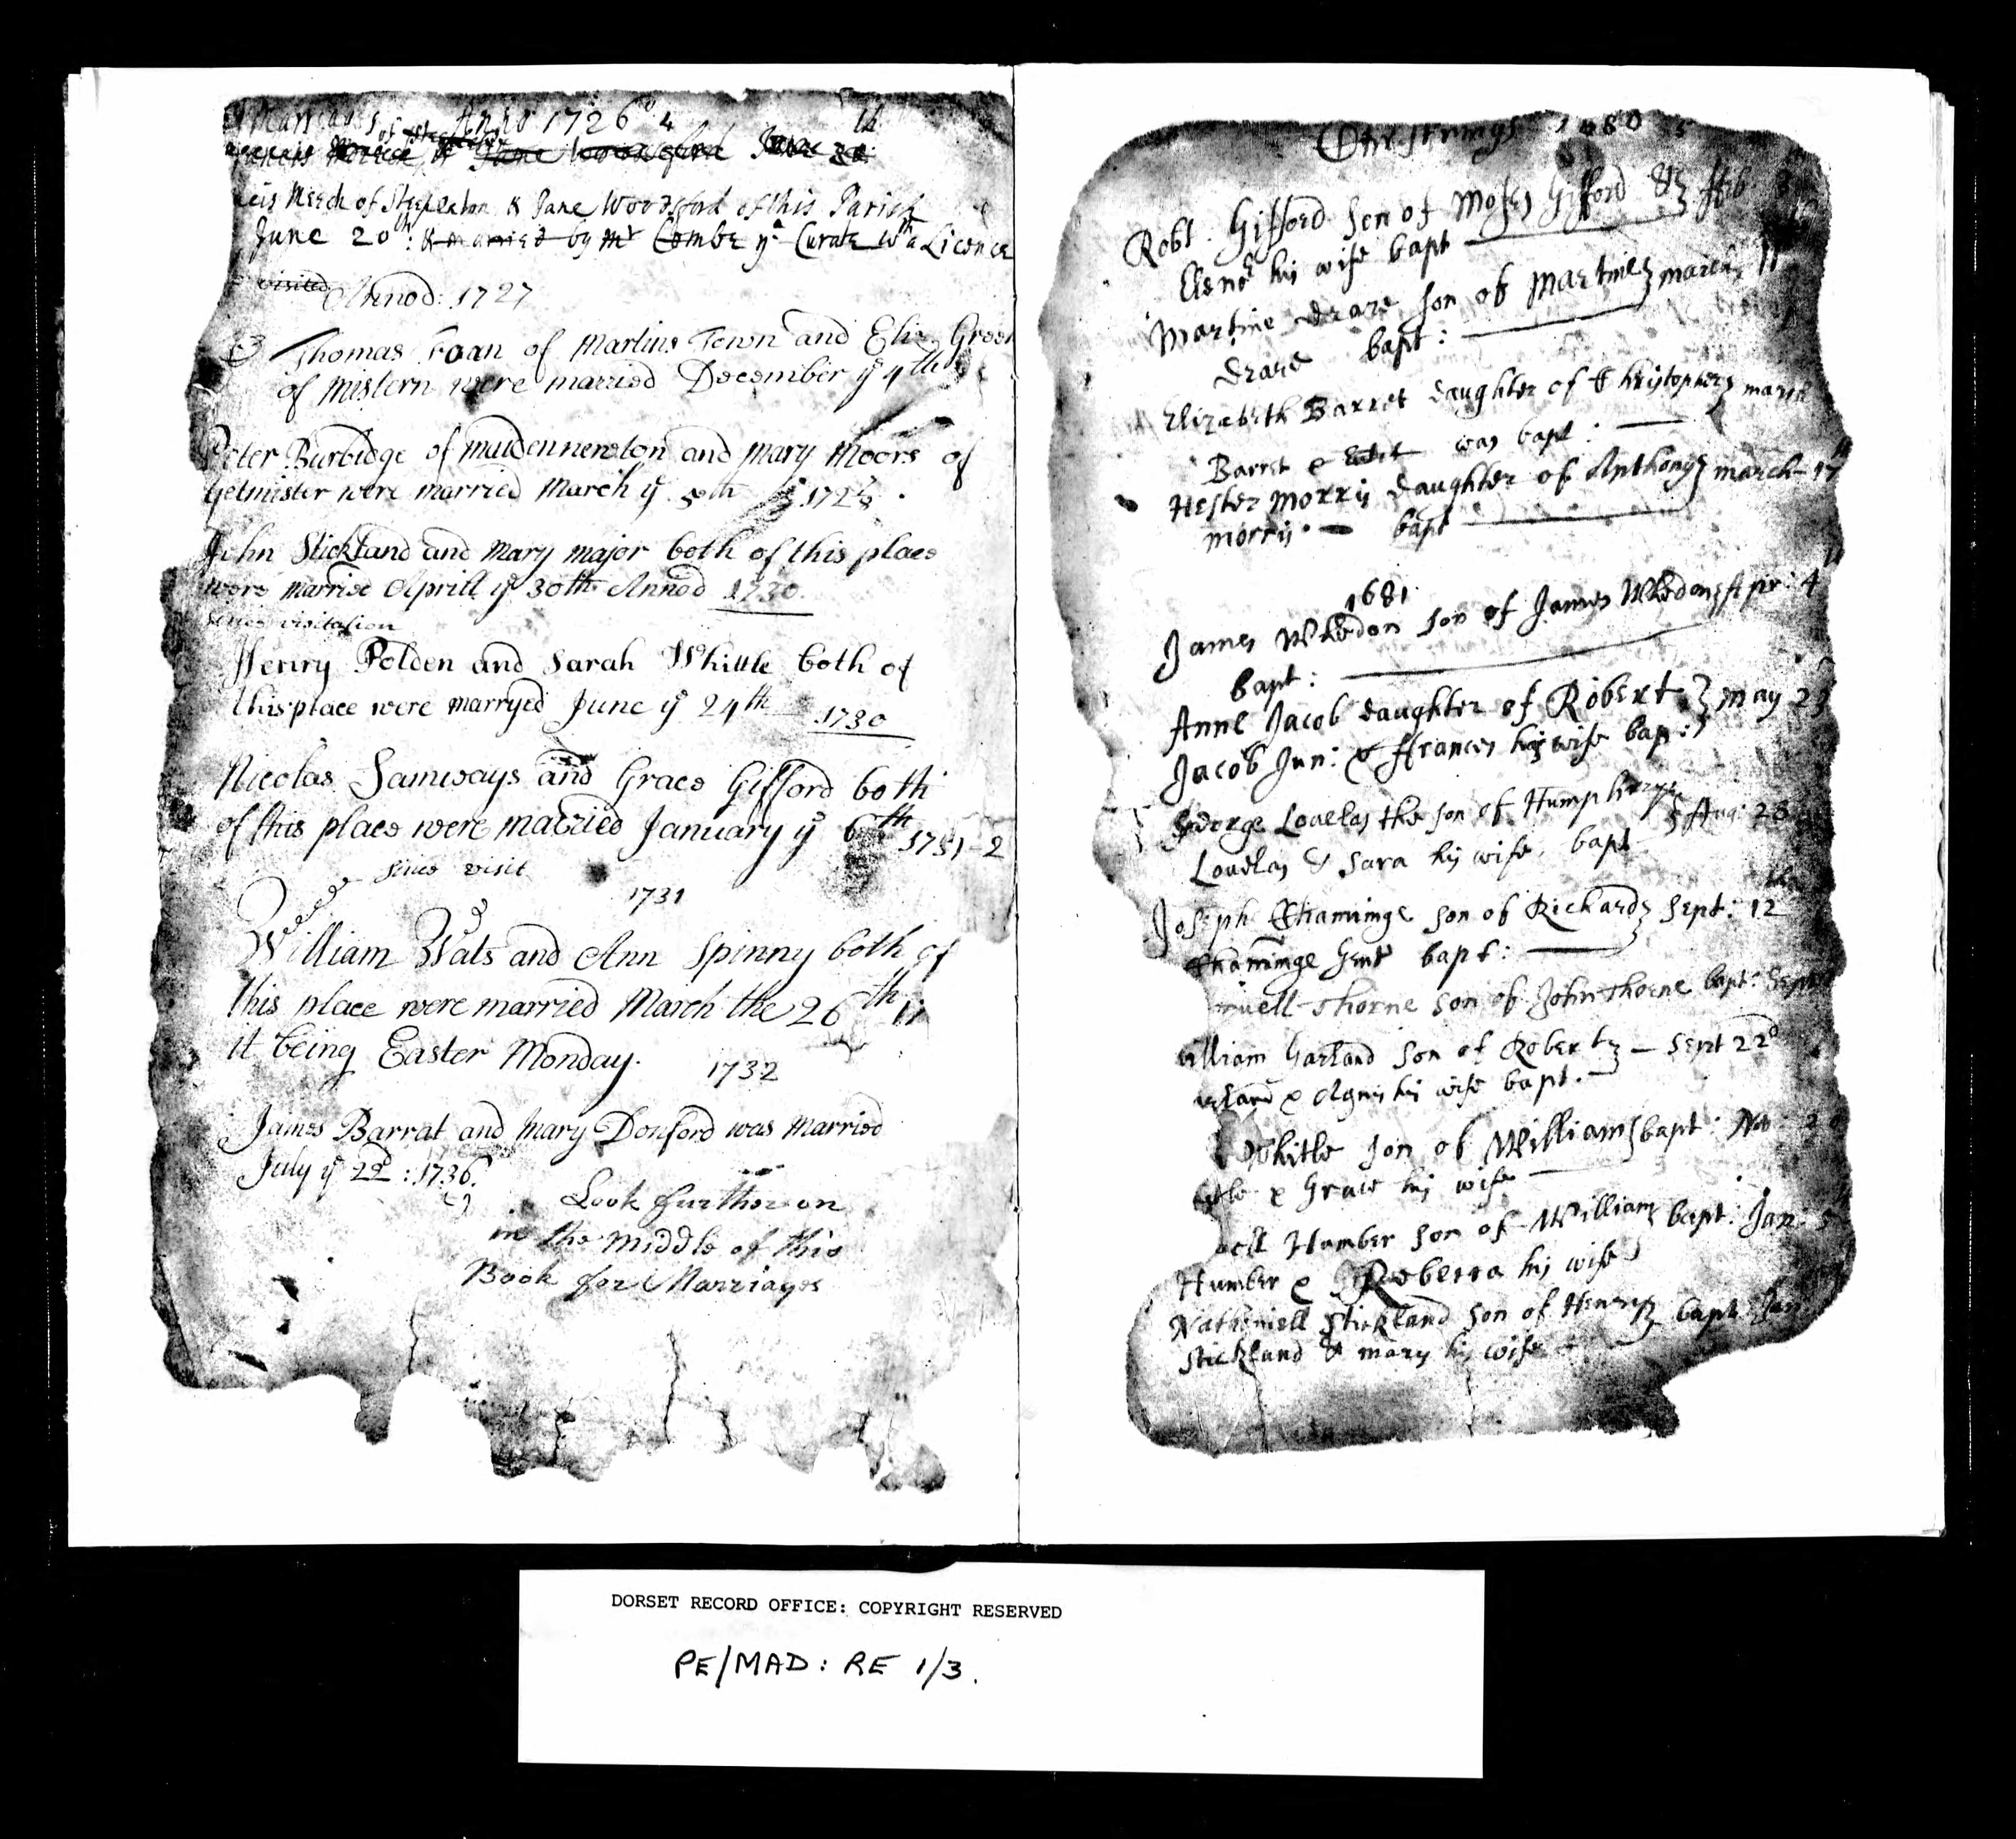 Marriages Anno 1726
of Steepleton
Jane Woodsford June 20th
Meech of Steeplaton & Jane Woodsford of this Parish
June 20th: & married by Mr Combe ye Curate wth a Licence
visited Annod: 1727
Thomas Foan of Martins Town and Eliz Green
of Mistern were married December ye 4th
Peter Burbidge of maidennewton and Mary Moors of
Yetmister were married March ye 5th 1727/8
John Stickland and Mary major both of this place
were married Aprill ye 30th Annod 1730
Since visitation
Henry Polden and Sarah Whittle both of
this place were marryed June ye 24th 1730
Nicolas Samways and Grace Gifford both
of this place were married January ye 6th 1731-2
Since visit
1731
William Wats and Ann Spinny both of
this place were married March the 26th
it being Easter Monday. 1732
James Barrat and Mary Donford was Married
July ye 22d: 1736.
Look further on
in the middle of this
Book for Marriages
Christnings 1680
Robt. Gifford Son of Moses Gifford & } ffeb
his wife bapt
Martine Drare son of Martine } march 11
Drare bapt:
Elizabeth Barret daughter of Christopher } march
Barret & was bapt:
Hester Morris daughter of Anthony } march 17
Morris bapt
1681
James Whedon son of James Whedon } Apr: 4
bapt:
Anne Jacob daughter of Robert } May 23
Jacob Jun: & ffrances his wife bapt:
George Louelas the son of Humphery } Aug: 28
Louelas & Sara his wife bapt
Joseph Channinge son of Richard } Sept: 12th
Channinge Gent bapt:
Thorne son of John Thorne bapt: Sept
William Garland son of Robert } Sept 22d
& Agnis his wife bapt.
Whitle son of William } bapt: No: 20
& Grace his wife
Humber son of William } bapt: Jan: 5
Humber & Roberta his wife
Nathaniell Stickland son of Henry } bapt: Jan
Stickland & mary his wife
DORSET RECORD OFFICE: COPYRIGHT RESERVED
PE/MAD: RE 1/3.